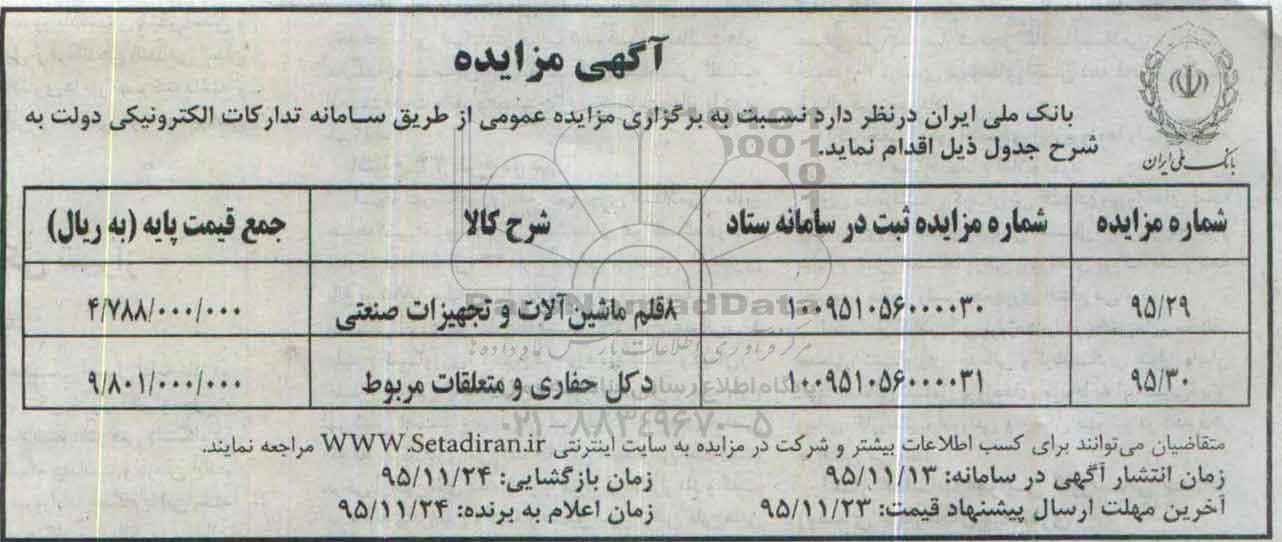 آگهی مزایده
بانک ملی ایران
بانک ملی ایران درنظر دارد نسبت به برگزاری مزایده عمومی از طریق سامانه تدارکات الکترونیکی دولت به
شرح جدول ذیل اقدام نماید.
شماره مزایده شماره مزایده ثبت در سامانه ستاد شرح کالا جمع قیمت پایه (به ریال)
۹۵/۲۹ ۱۰۰۹۵۱۰۵۶۰۰۰۰۳۰ ۸قلم ماشین‌آلات و تجهیزات صنعتی ۴/۷۸۸/۰۰۰/۰۰۰
۹۵/۳۰ ۱۰۰۹۵۱۰۵۶۰۰۰۰۳۱ دکل حفاری و متعلقات مربوط ۹/۸۰۱/۰۰۰/۰۰۰
متقاضیان می‌توانند برای کسب اطلاعات بیشتر و شرکت در مزایده به سایت اینترنتی WWW.Setadiran.ir مراجعه نمایند.
زمان انتشار آگهی در سامانه: ۹۵/۱۱/۱۳ زمان بازگشایی: ۹۵/۱۱/۲۴
آخرین مهلت ارسال پیشنهاد قیمت: ۹۵/۱۱/۲۳ زمان اعلام به برنده: ۹۵/۱۱/۲۴
ParsNamadData
۰۲۱-۸۸۳۴۹۶۷۰-۵